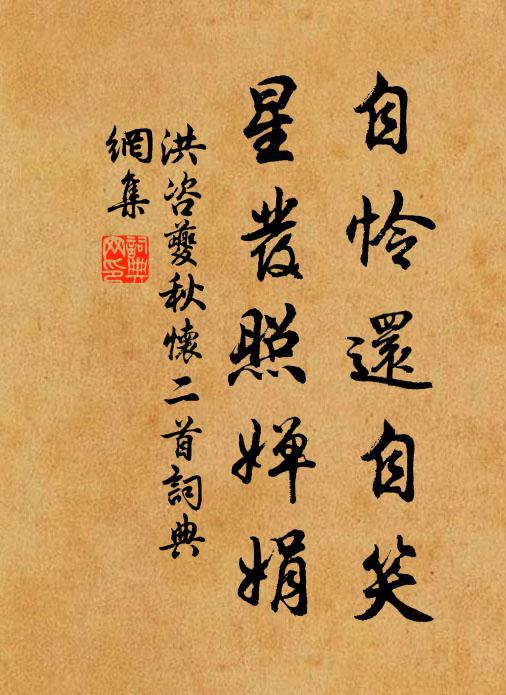 自怜還自笑
星發照嬋娟
洪咨夔秋懷二首詞典
網集
詞典
网印